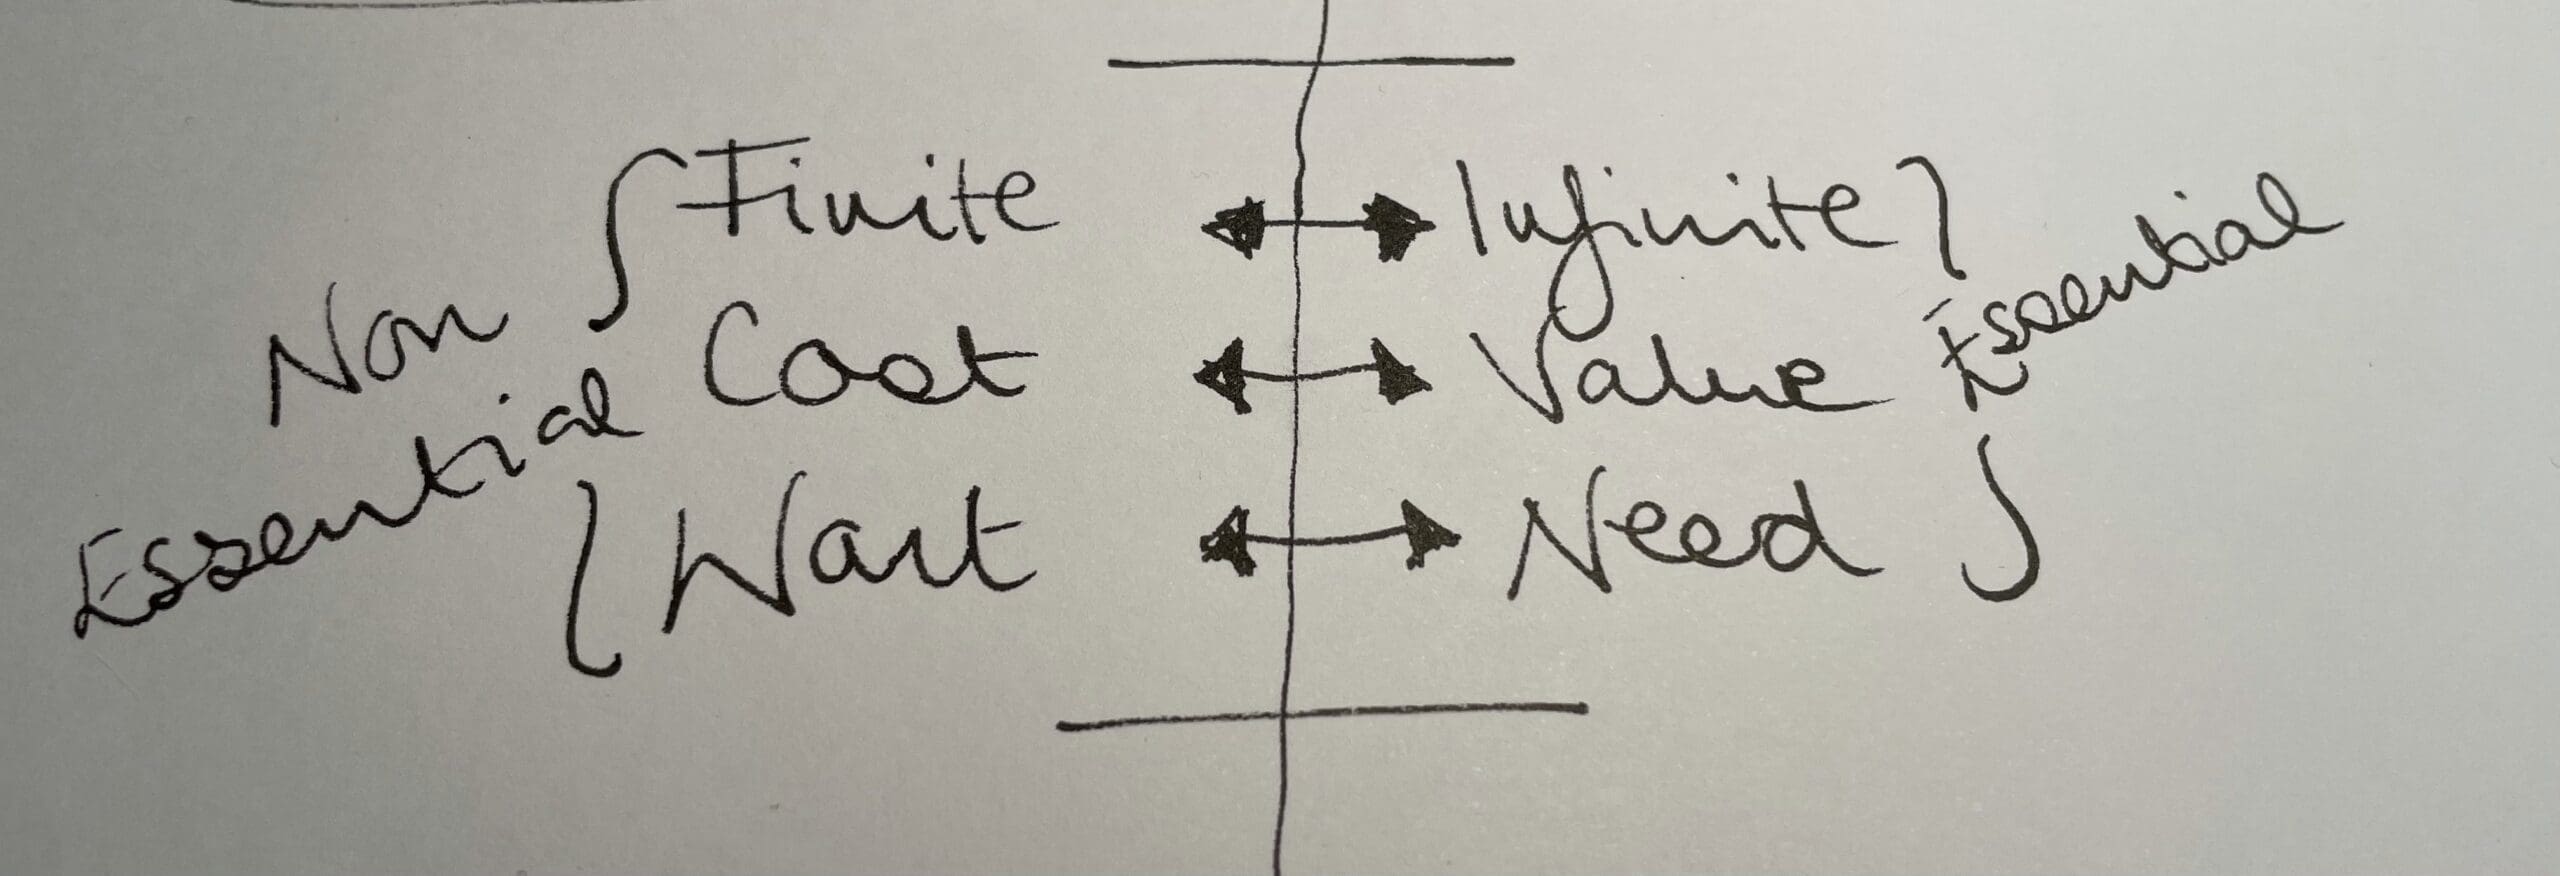 Non Essential
Finite ↔ Infinite
Cost ↔ Value
Want ↔ Need
Essential